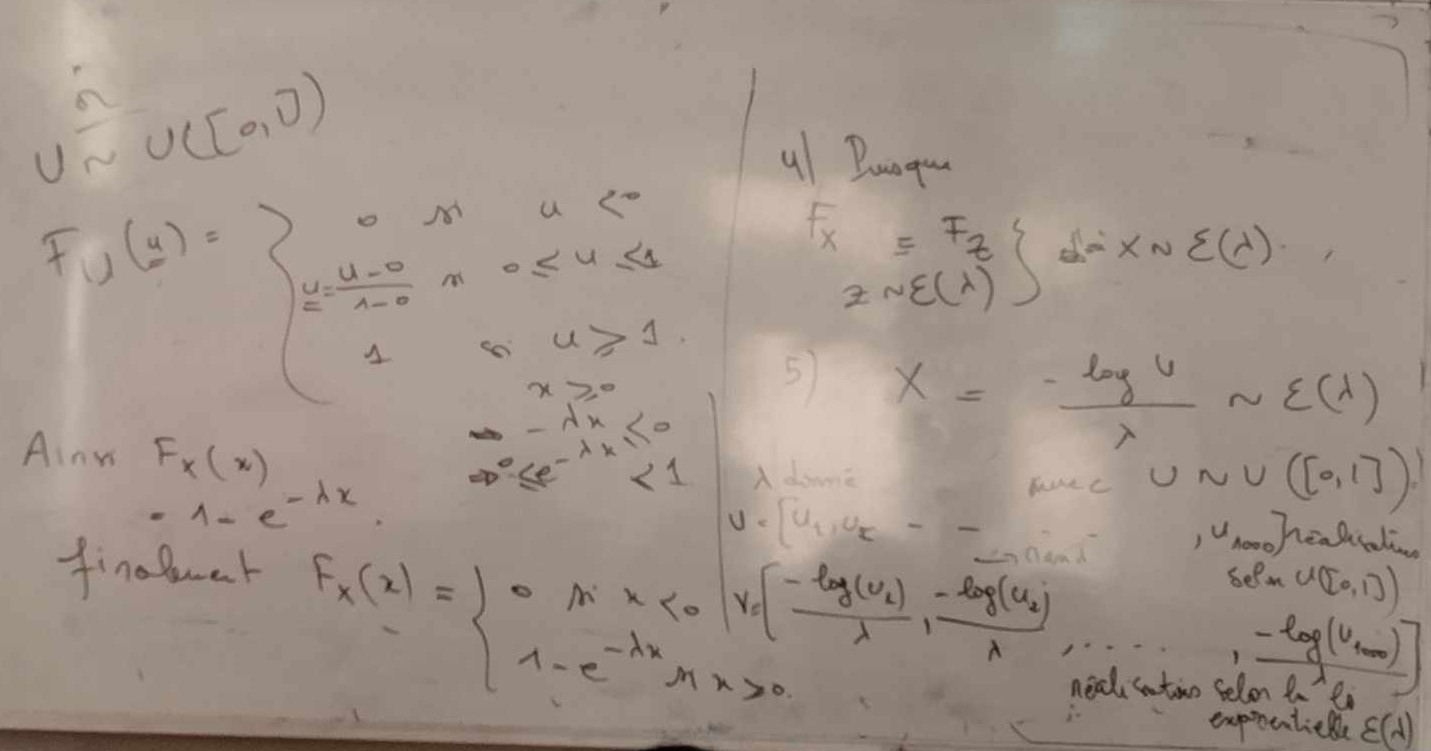 U ~ U([0,1])
F_U(u) = { 0 si u < 0
u = (u-0)/(1-0) si 0 ≤ u ≤ 1
1 si u ≥ 1.
x ≥ 0
⇒ -λx ≤ 0
⇒ 0 ≤ e^{-λx} < 1
Ainsi F_X(x)
= 1 - e^{-λx}.
finalement F_X(x) = { 0 si x < 0
1 - e^{-λx} si x ≥ 0.
4) Puisque
F_X = F_Z
Z ~ Ɛ(λ) } X ~ Ɛ(λ).
5) X = - log U / λ ~ Ɛ(λ)
λ donné avec U ~ U([0,1]).
U = [u_1, u_2 - - , u_1000] réalisations
selon U([0,1])
V = [ -log(u_1)/λ , -log(u_2)/λ , ..... , -log(u_1000)/λ ]
réalisations selon la loi
exponentielle Ɛ(λ)